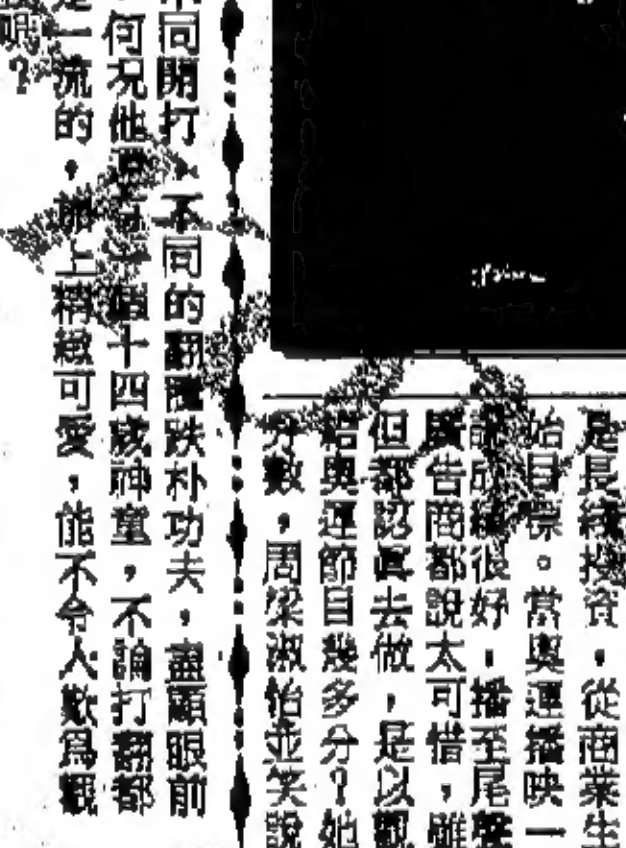 是長線投資,從商業生
始目標。當奧運播映一
成績很好,播至尾聲
廣告商都說太可惜,雖
但都認真去做,是以觀
給奧運節目幾多分?她
分數,周梁淑怡並笑說
同開打,不同的翻騰跌朴功夫,盡顯眼前
何況他 十四歲神童,不論打翻都
是一流的,加上精緻可愛,能不令人歎為觀